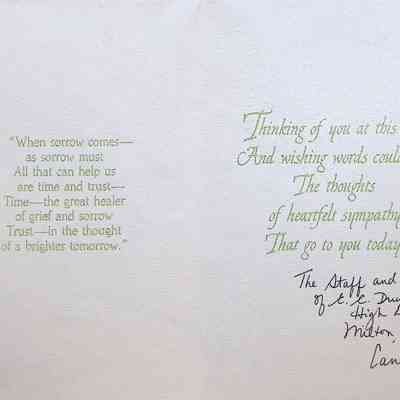 "When sorrow comes—
as sorrow must
All that can help us
are time and trust—
Time—the great healer
of grief and sorrow
Trust—in the thought
of a brighter tomorrow."
Thinking of you at this
And wishing words could
The thoughts
of heartfelt sympathy
That go to you today
The Staff and
of E. C. Dru
High
Milton,
Can